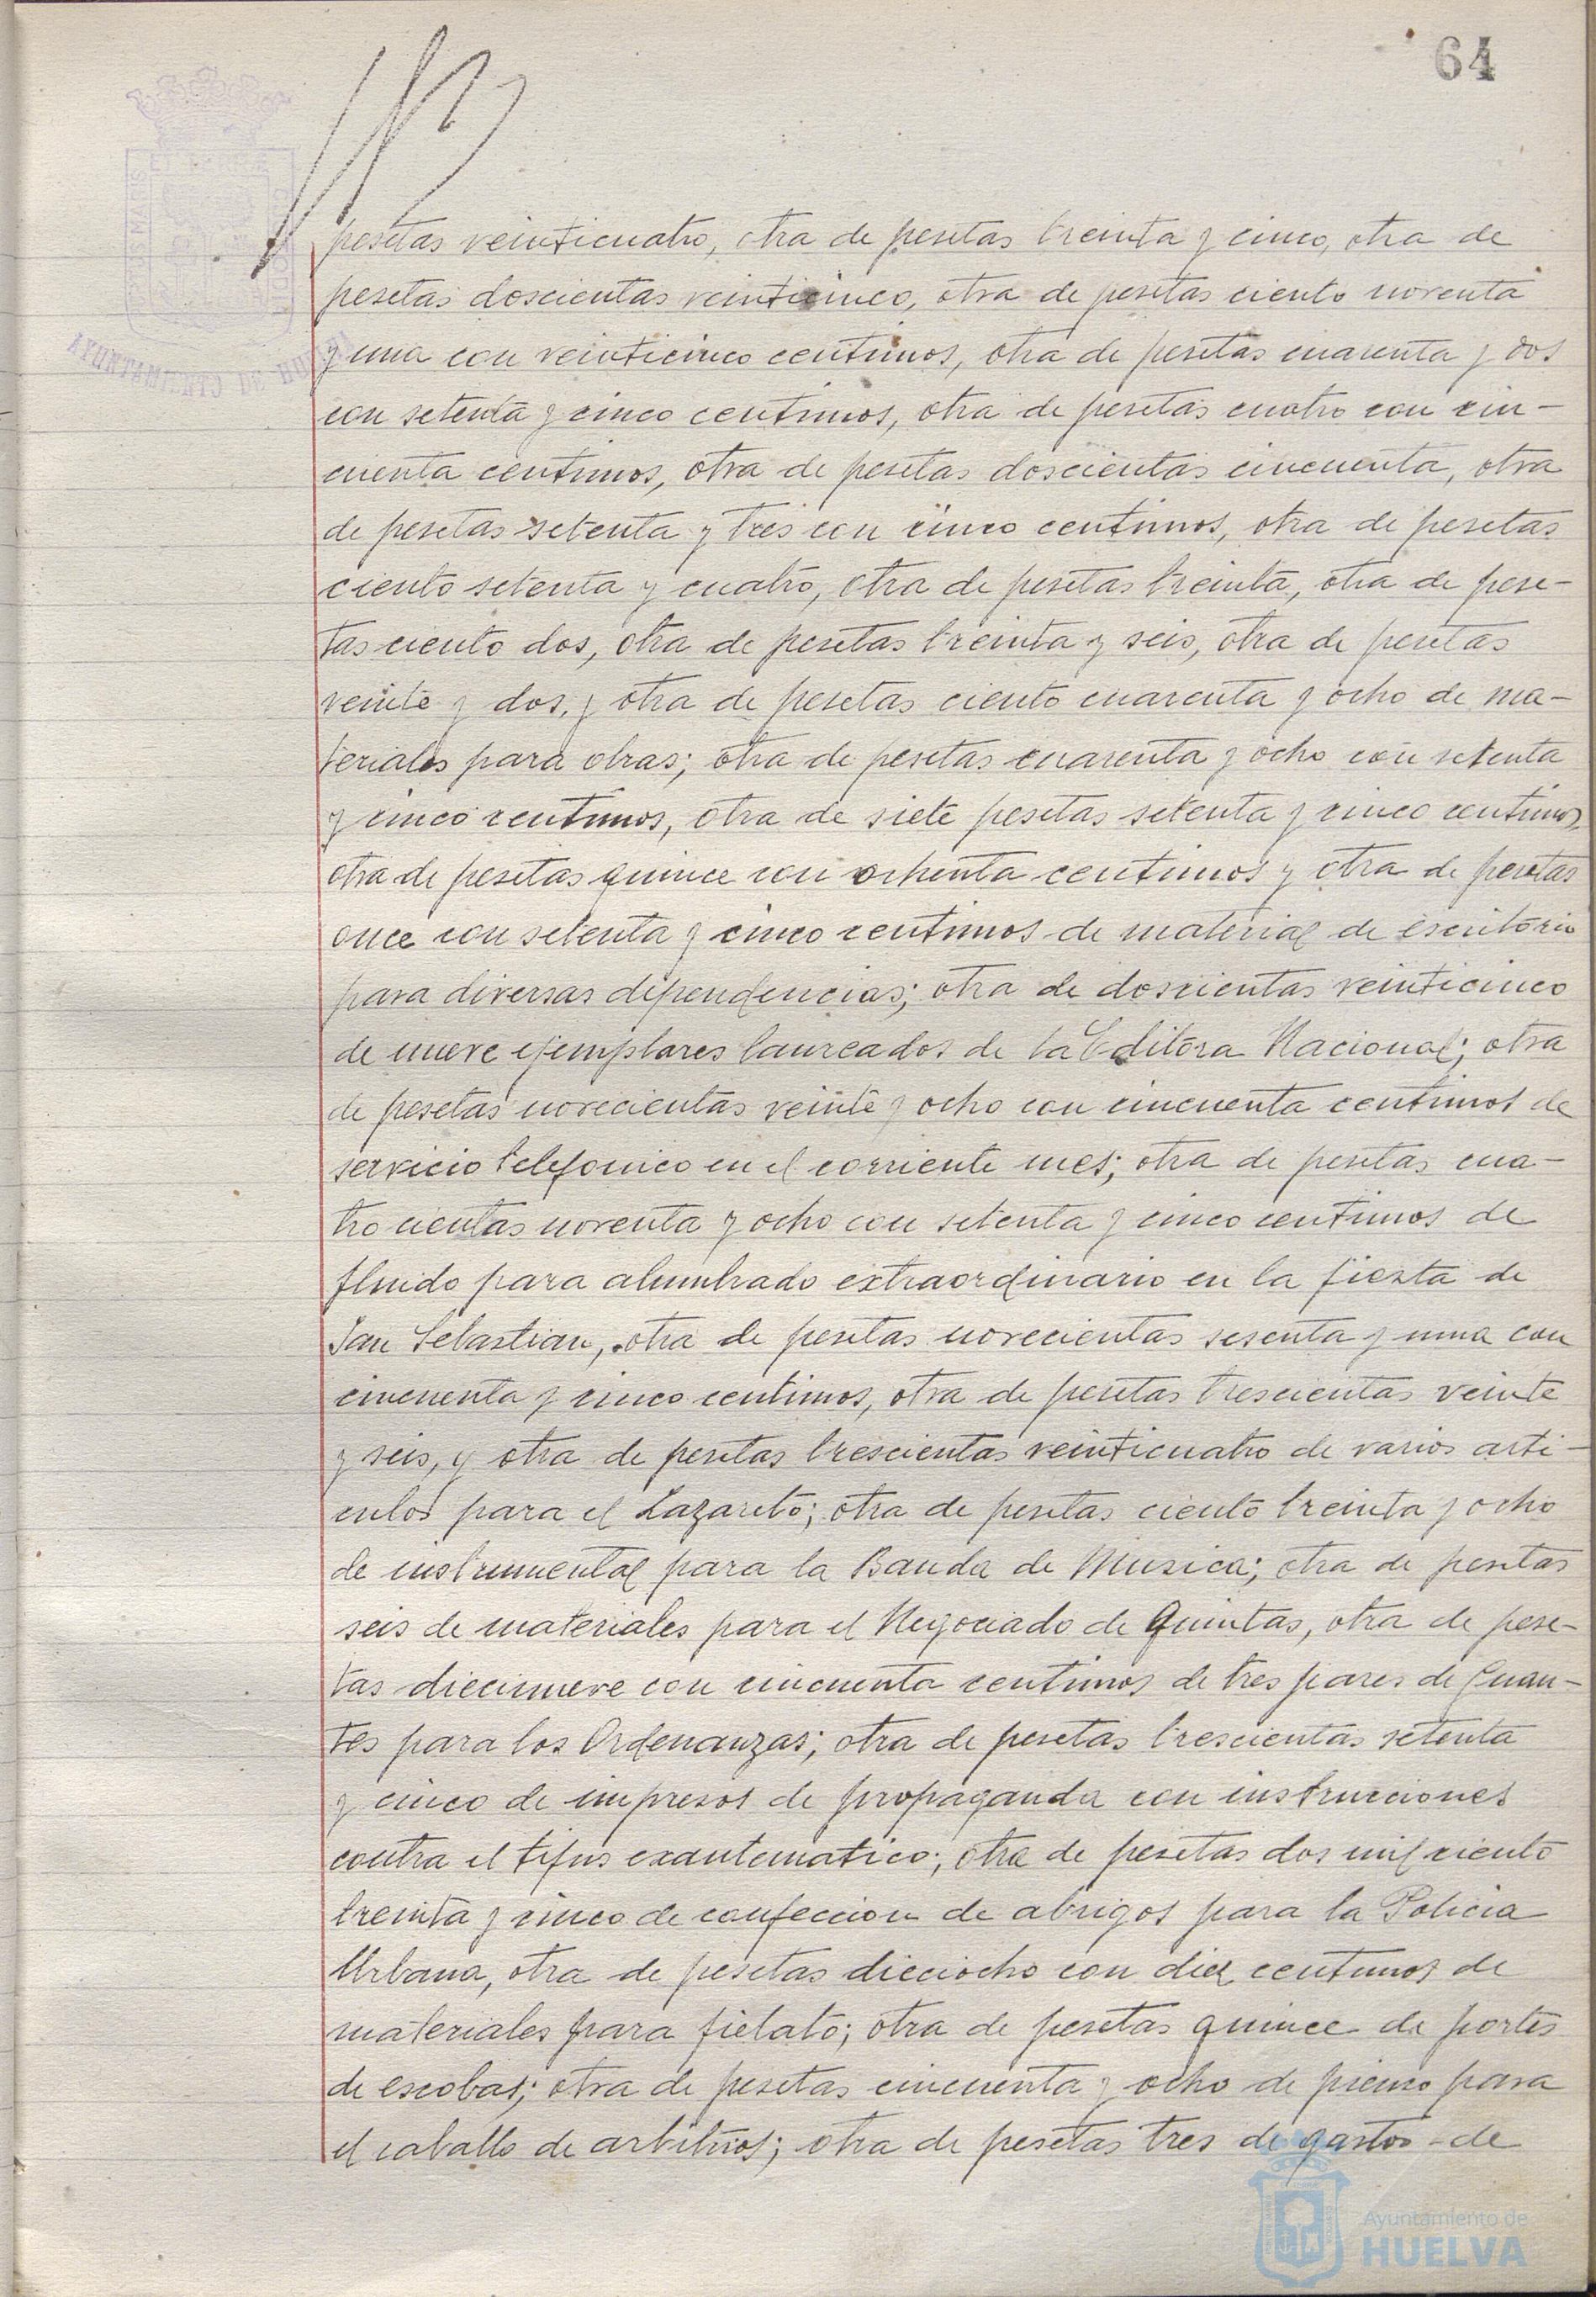 64
pesetas veinticuatro, otra de pesetas treinta y cinco, otra de
pesetas doscientas veinticinco, otra de pesetas ciento noventa
y una con veinticinco centimos, otra de pesetas cuarenta y dos
con setenta y cinco centimos, otra de pesetas cuatro con cin-
cuenta centimos, otra de pesetas doscientas cincuenta, otra
de pesetas setenta y tres con cinco centimos, otra de pesetas
ciento setenta y cuatro, otra de pesetas treinta, otra de pese-
tas ciento dos, otra de pesetas treinta y seis, otra de pesetas
veinte y dos, y otra de pesetas ciento cuarenta y ocho de ma-
teriales para obras; otra de pesetas cuarenta y ocho con setenta
y cinco centimos, otra de siete pesetas setenta y cinco centimos,
otra de pesetas quince con ochenta centimos y otra de pesetas
once con setenta y cinco centimos de material de escritorio
para diversas dependencias; otra de doscientas veinticinco
de nueve ejemplares laureados de la Editora Nacional; otra
de pesetas novecientas veinte y ocho con cincuenta centimos de
servicio telefonico en el corriente mes; otra de pesetas cua-
tro cientas noventa y ocho con setenta y cinco centimos de
fluido para alumbrado extraordinario en la fiesta de
San Sebastian, otra de pesetas novecientas sesenta y una con
cincuenta y cinco centimos, otra de pesetas trescientas veinte
y seis, y otra de pesetas trescientas veinticuatro de varios arti-
culos para el Lazareto; otra de pesetas ciento treinta y ocho
de instrumental para la Banda de Musica; otra de pesetas
seis de materiales para el Negociado de Quintas, otra de pese-
tas diecinueve con cincuenta centimos de tres pares de Guan-
tes para los Ordenanzas; otra de pesetas trescientas setenta
y cinco de impresos de propaganda con instrucciones
contra el tifus exantematico; otra de pesetas dos mil ciento
treinta y cinco de confeccion de abrigos para la Policia
Urbana, otra de pesetas dieciocho con diez centimos de
materiales para fielato; otra de pesetas quince de portes
de escobas; otra de pesetas cincuenta y ocho de pienso para
el caballo de arbitrios; otra de pesetas tres de gastos de
AYUNTAMIENTO DE HUELVA
Ayuntamiento de
HUELVA